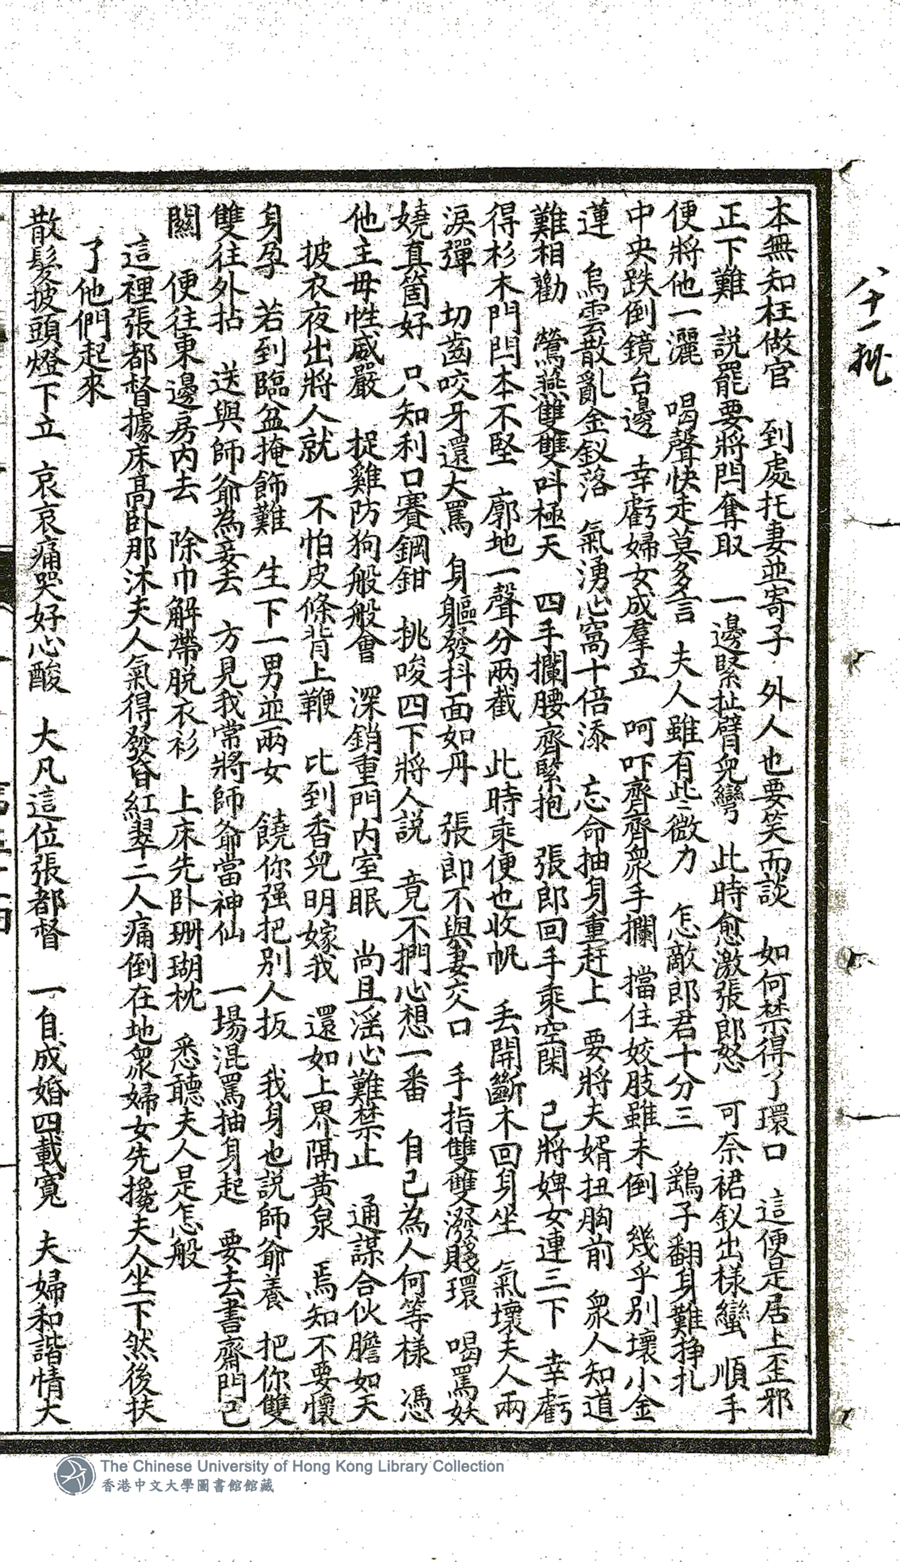 本無知枉做官　到處托妻並寄子　外人也要笑而談　如何禁得了環口　這便是居上歪邪
正下難　説罷要將閂奪取　一邊緊扯臂兒彎　此時愈激張郎怒　可奈裙釵出樣蠻　順手
便將他一灑　喝聲快走莫多言　夫人雖有些微力　怎敵郎君十分三　鷂子翻身難挣扎
中央跌倒鏡台邊　幸虧婦女成羣立　呵吓齊齊衆手攔　擋住姣肢雖未倒　幾乎别壞小金
蓮　烏雲散亂金釵落　氣湧心窩十倍添　忘命抽身重赶上　要將夫婿扭胸前　衆人知道
難相勸　鶯燕雙雙呌極天　四手攔腰齊緊抱　張郎回手乘空閑　已將婢女連三下　幸虧
得杉木門閂本不堅　廓地一聲分兩截　此時乘便也收帆　丢開斷木回身坐　氣壞夫人兩
淚彈　切齒咬牙還大罵　身軀發抖面如丹　張郎不與妻交口　手指雙雙潑賤環　喝罵妖
嬈真箇好　只知利口賽鋼鉗　挑唆四下將人説　竟不捫心想一番　自己為人何等樣　憑
他主毋性威嚴　捉雞防狗般般會　深銷重門内室眠　尚且滛心難禁止　通謀合伙膽如天
披衣夜出將人就　不怕皮條背上鞭　比到香兒明嫁我　還如上界隔黄泉　焉知不要懷
身孕　若到臨盆掩飾難　生下一男並兩女　饒你强把别人扳　我身也説師爺養　把你雙
雙往外拈　送與師爺為妾去　方見我常將師爺當神仙　一場混罵抽身起　要去書齋門已
關　便往東邊房内去　除巾解帶脱衣衫　上床先卧珊瑚枕　悉聽夫人是怎般
這裡張都督據床高卧那沐夫人氣得發昏紅翠二人痛倒在地衆婦女先攙夫人坐下然後扶
了他們起來
散髮披頭燈下立　哀哀痛哭好心酸　大凡這位張都督　一自成婚四載寬　夫婦和諧情大
The Chinese University of Hong Kong Library Collection
香港中文大學圖書館館藏